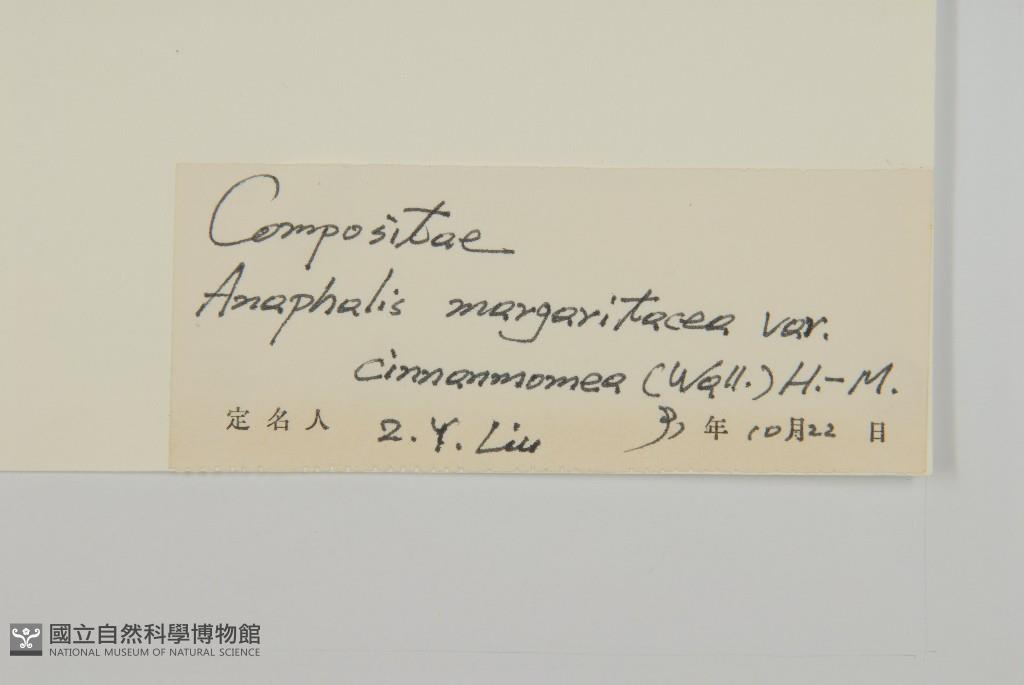 Compositae
Anaphalis margaritacea var.
cinnanmomea (Wall.) H.-M.
定名人 Z. Y. Liu 年 10月22日
國立自然科學博物館
NATIONAL MUSEUM OF NATURAL SCIENCE